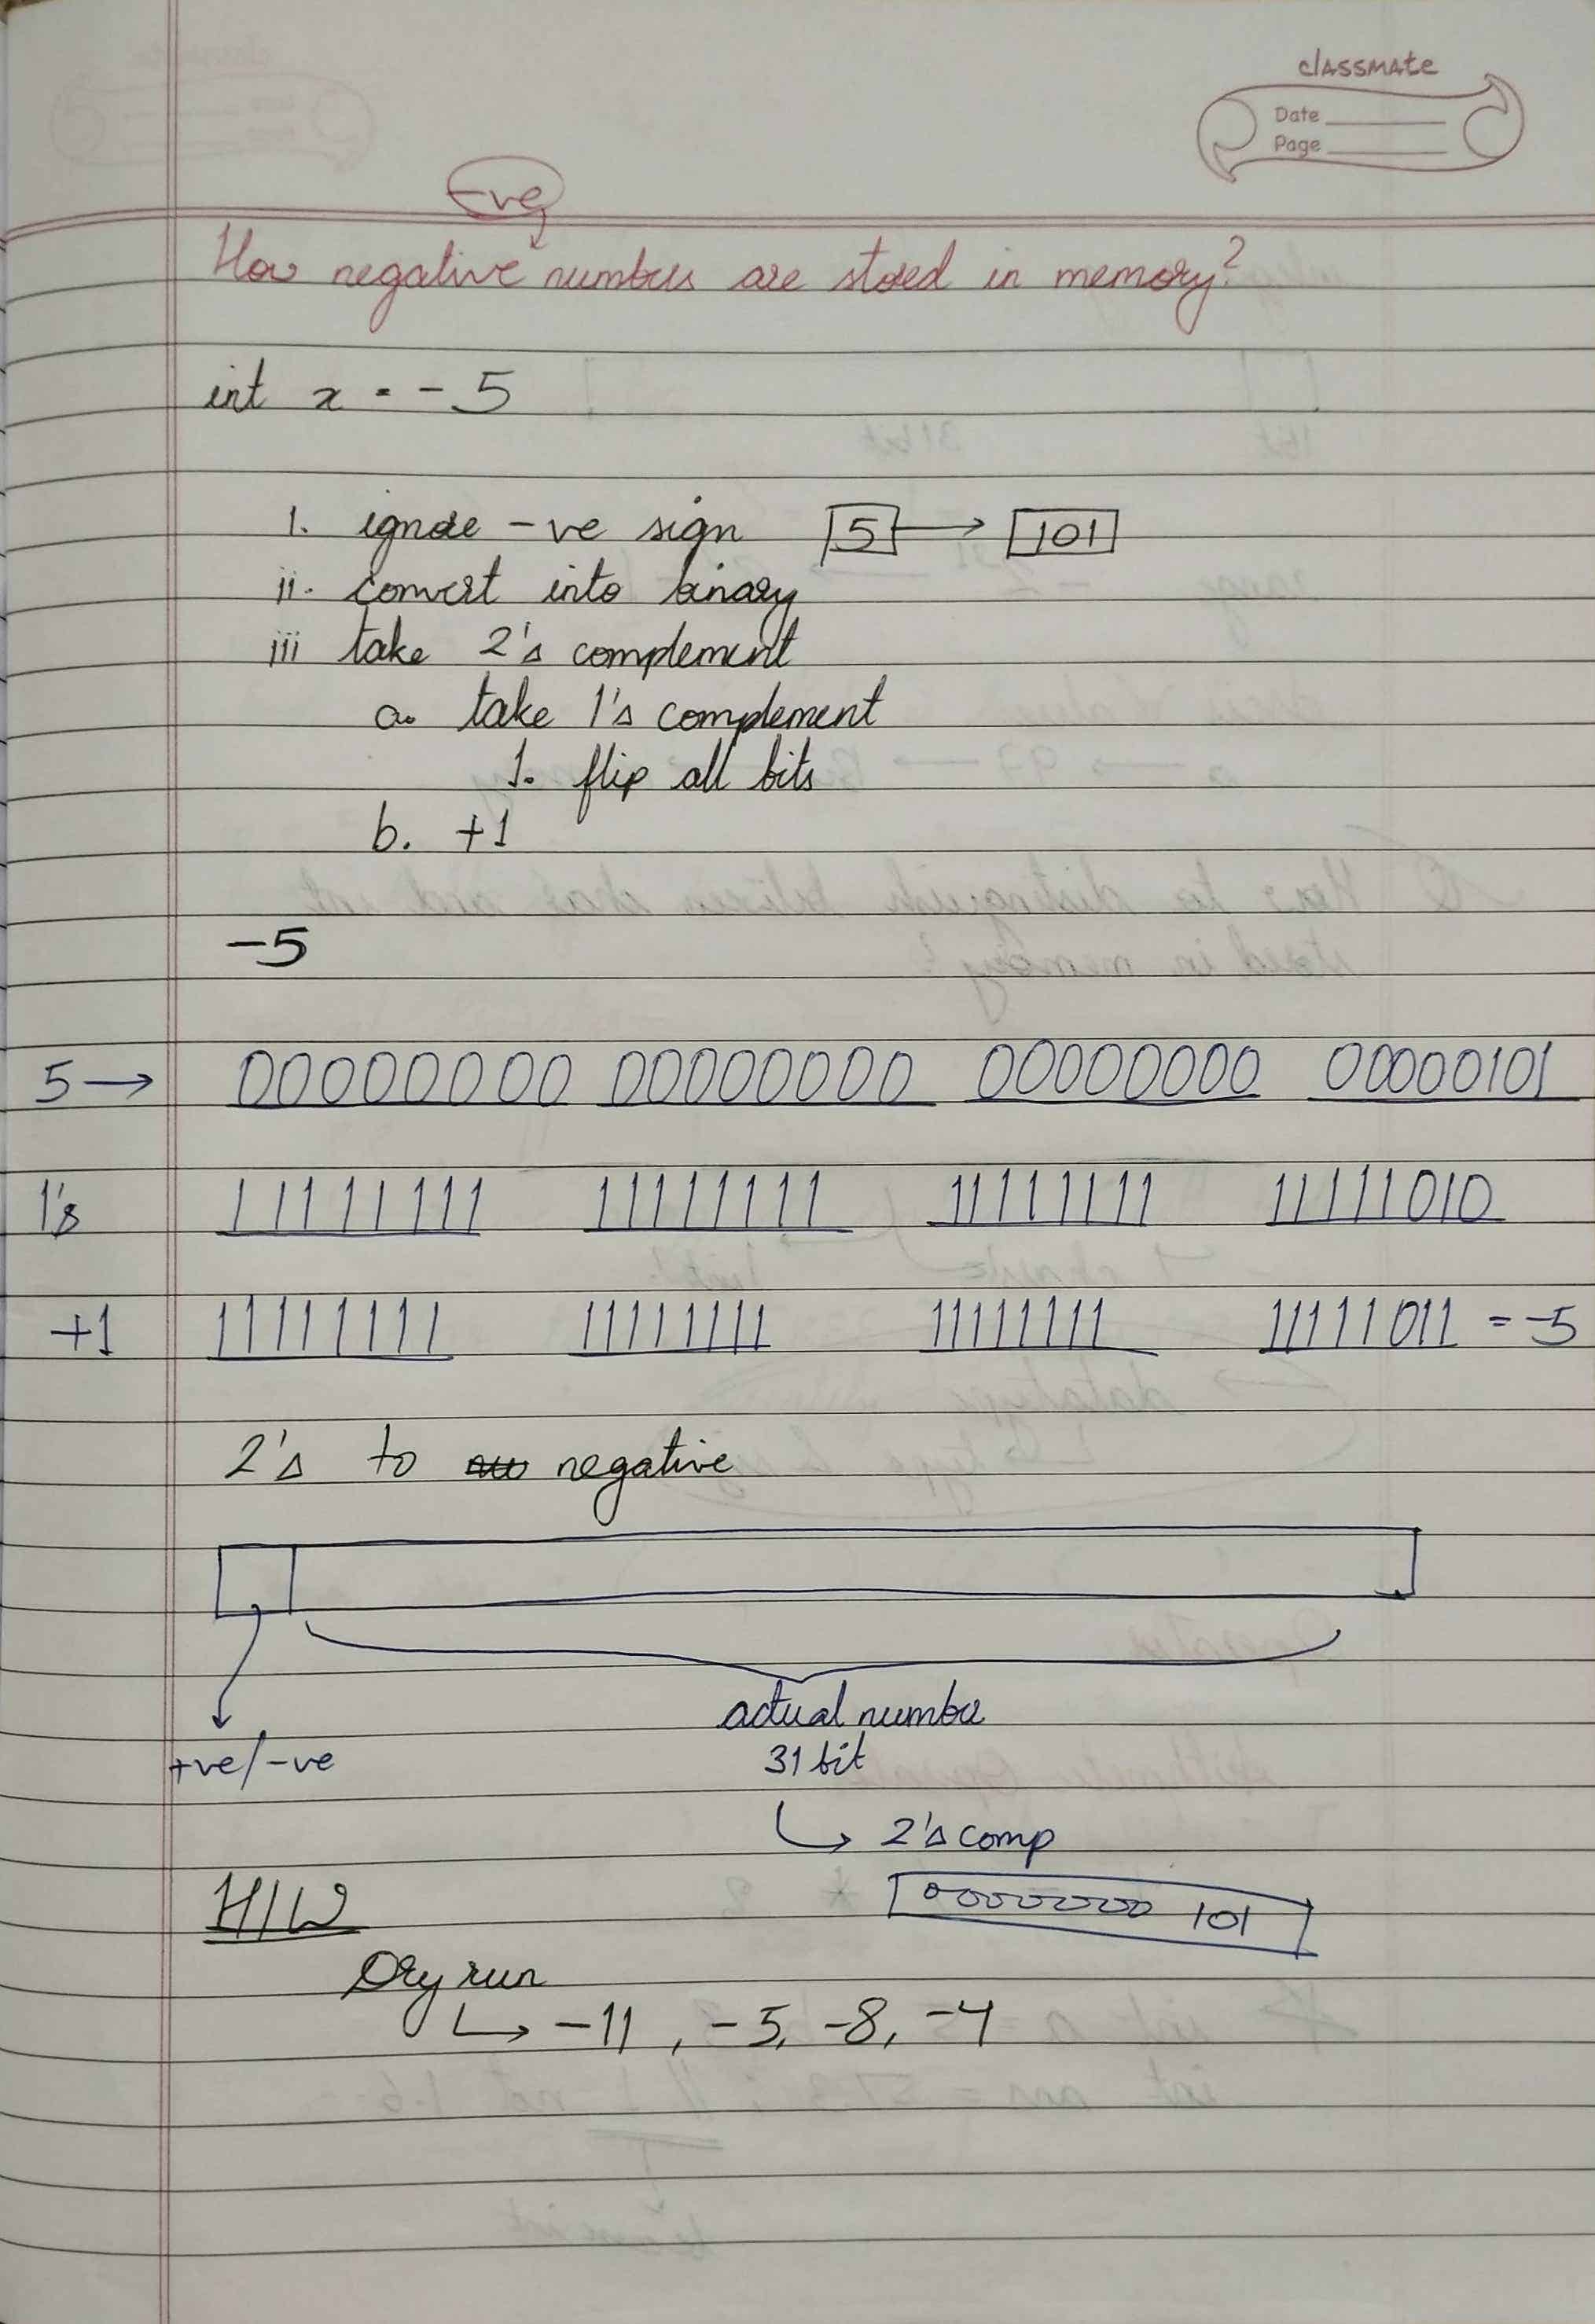 classmate
Date
Page
-ve
How negative numbers are stored in memory?
int x = -5
1. ignore -ve sign 5 → 101
ii. convert into binary
iii take 2's complement
a. take 1's complement
1. flip all bits
b. +1
-5
5 → 00000000 00000000 00000000 00000101
1's 11111111 11111111 11111111 11111010
+1 11111111 11111111 11111111 11111011 = -5
2's to negative
+ve/-ve
actual number
31 bit
↳ 2's comp
00000000 101
H/W
Dry run
↳ -11, -5, -8, -4